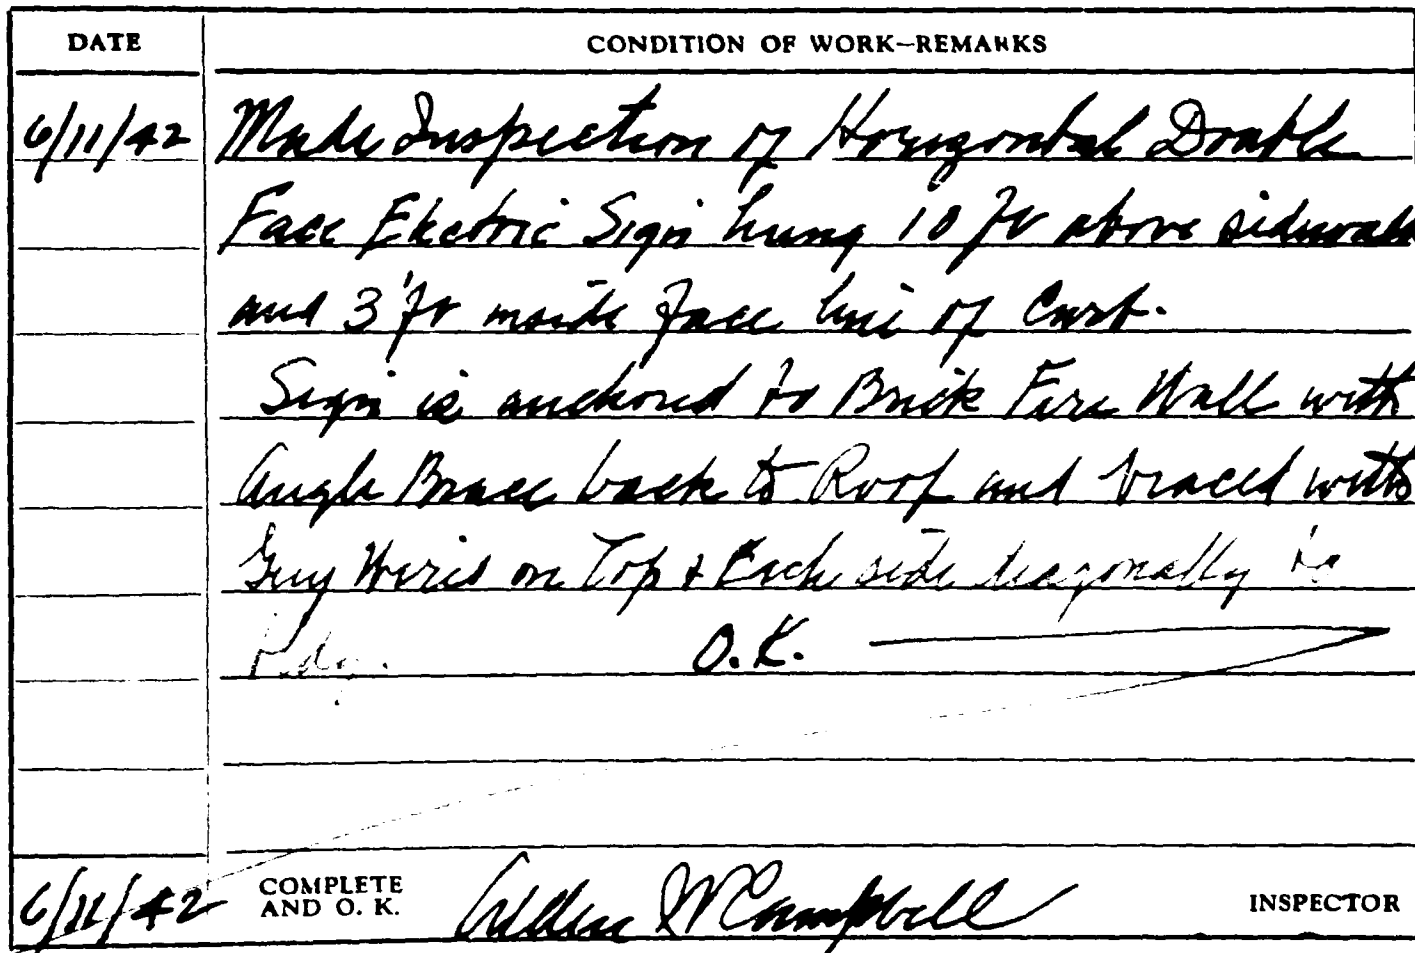 DATE CONDITION OF WORK—REMARKS
6/11/42 Made Inspection of Horizontal Double
Face Electric Sign hung 10 ft above sidewalk
and 3'ft inside face line of Curb.
Sign is anchored to Brick Fire Wall with
Angle Brace back to Roof and braced with
Guy Wires on Top & Each side diagonally to
Bldg. O.K.
6/11/42 COMPLETE AND O. K. Campbell INSPECTOR